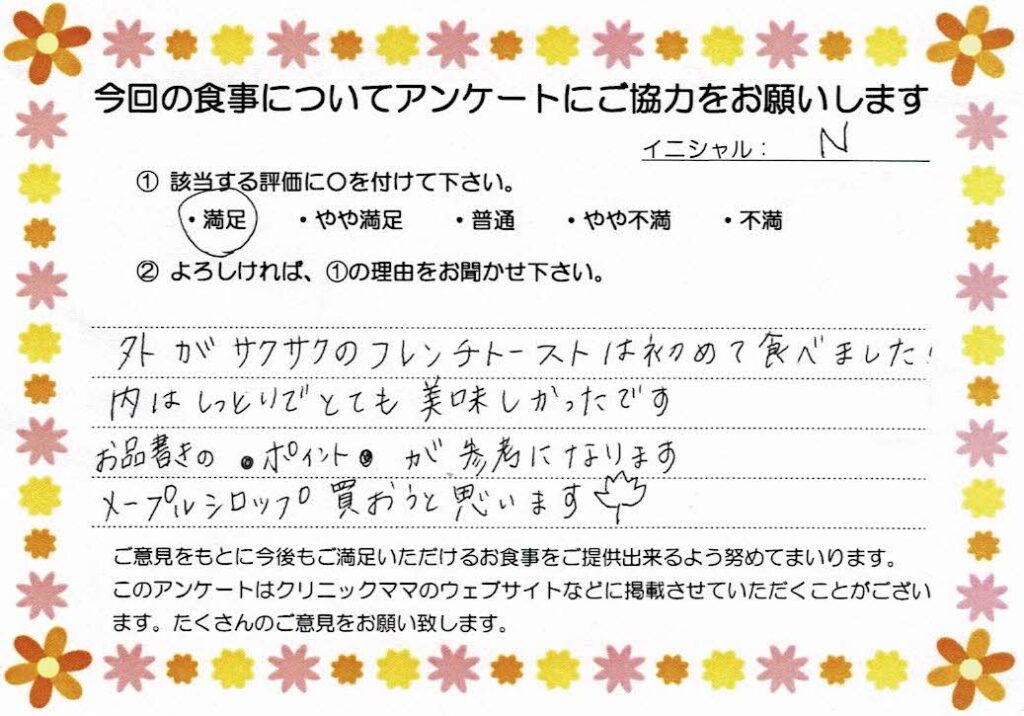 今回の食事についてアンケートにご協力をお願いします
イニシャル： N
① 該当する評価に〇を付けて下さい。
・満足 ・やや満足 ・普通 ・やや不満 ・不満
② よろしければ、①の理由をお聞かせ下さい。
外がサクサクのフレンチトーストは初めて食べました！
内はしっとりでとても美味しかったです
お品書きの ●ポイント● が参考になります
メープルシロップ買おうと思います
ご意見をもとに今後もご満足いただけるお食事をご提供出来るよう努めてまいります。
このアンケートはクリニックママのウェブサイトなどに掲載させていただくことがござい
ます。たくさんのご意見をお願い致します。